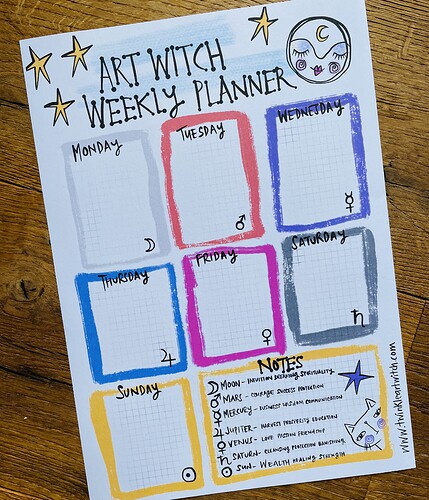 ART WITCH
WEEKLY PLANNER
MONDAY
TUESDAY
WEDNESDAY
☽
♂
☿
THURSDAY
FRIDAY
SATURDAY
♃
♀
♄
SUNDAY
☉
NOTES
☽ MOON - INTUITION DREAMING SPIRITUALITY
♂ MARS - COURAGE SUCCESS PROTECTION
☿ MERCURY - BUSINESS WISDOM COMMUNICATION
♃ JUPITER - HARVEST PROSPERITY EDUCATION
♀ VENUS - LOVE PASSION FRIENDSHIP
♄ SATURN - CLEANSING PROTECTION BANISHING
☉ SUN - WEALTH HEALING STRENGTH
www.twinkleartwitch.com